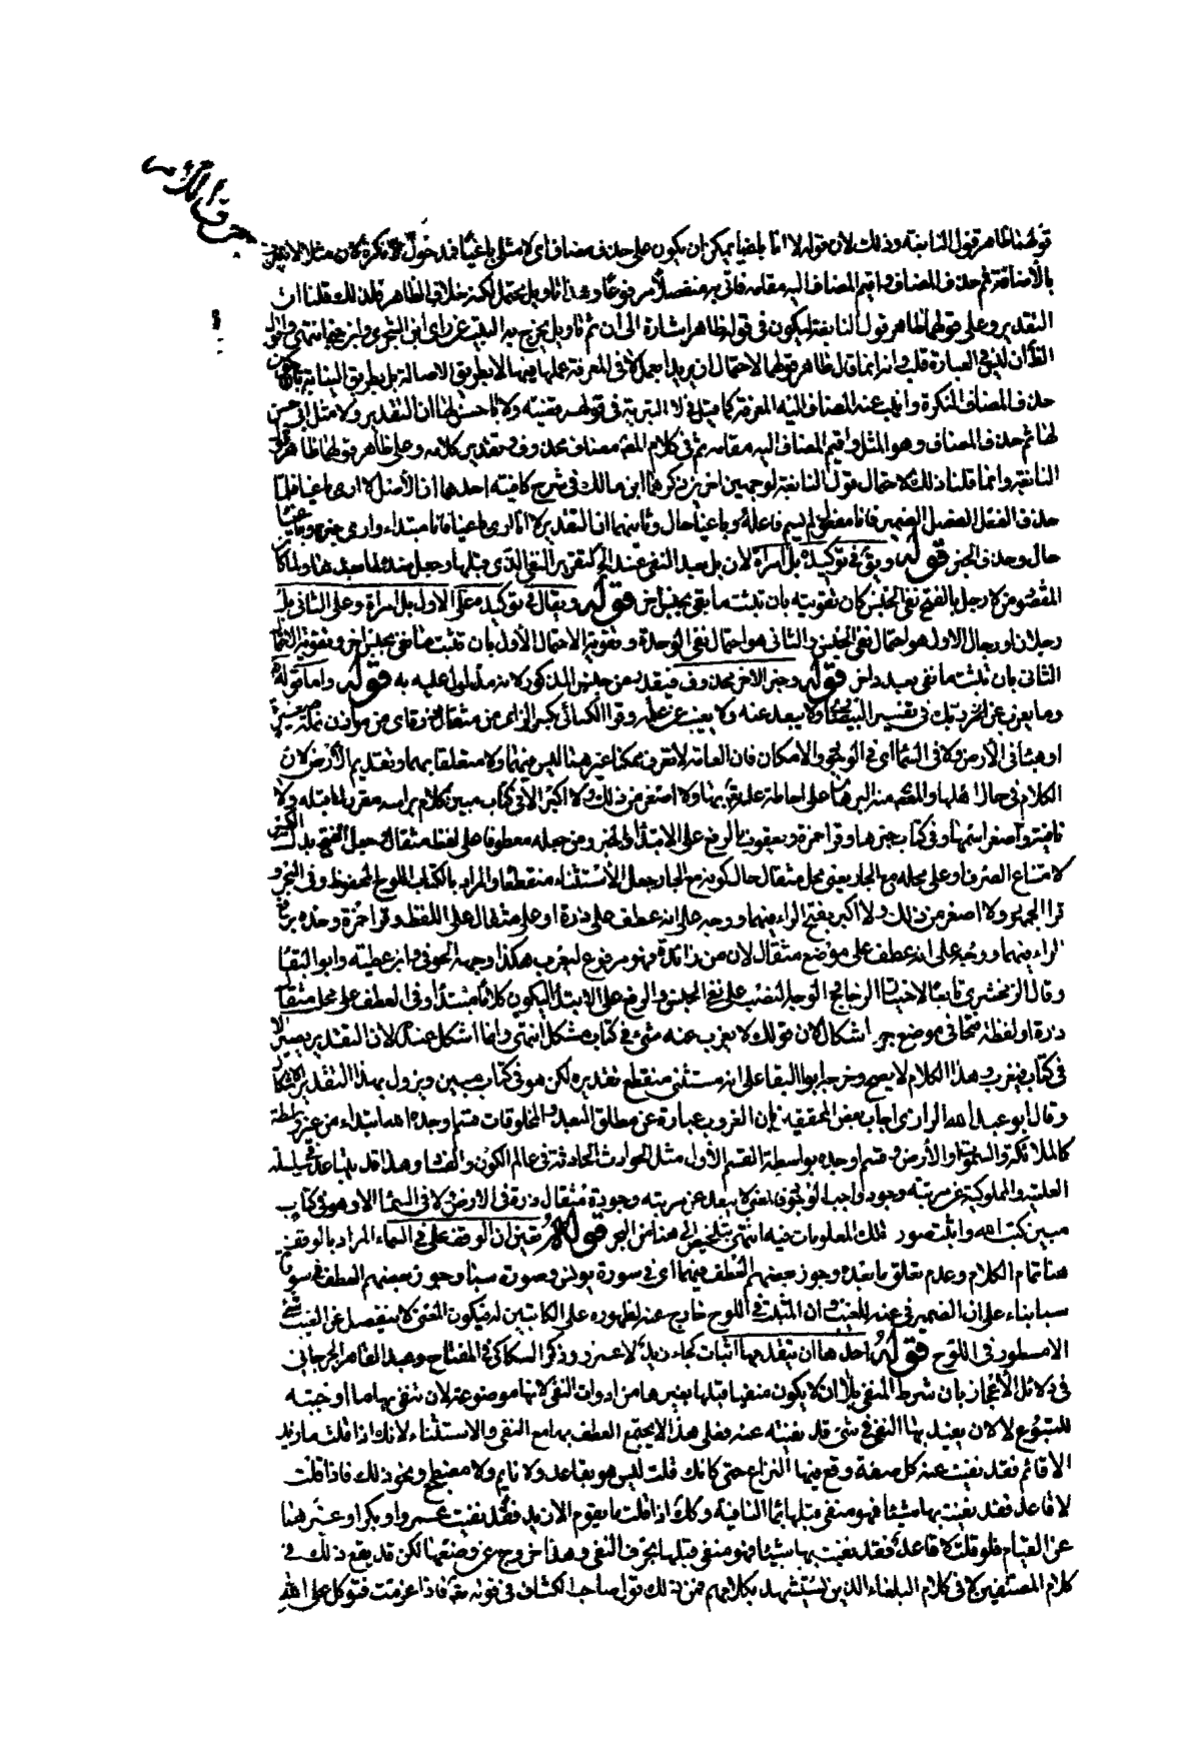 قولهما ظاهر قول النابغة وذلك لأن قوله لا انا باغيا يمكن ان يكون على حذف مضاف اى لا مثلي باغيا فدخول لا نكرة لان مثلا لا يتعرف
بالاضافة ثم حذف المضاف واقيم المضاف اليه مقامه فاتى به منفصلا مرفوعا وهذا تاويل محتمل لكنه خلاف الظاهر فلذلك قلنا ان
التقدير وعلى قولهما ظاهر قول النابغة ليكون في قوله ظاهر اشارة الى ان ثم تاويل يخرج به البيت عن راى ابن الشجرى وابن جنى انتهى
حذف المضاف النكرة وانيب عنه المضاف اليه المعرفة كما قيل في لا البرية في قولهم قضية ولا ابا حسن لها ان التقدير ولا مثل ابى حسن
لها ثم حذف المضاف وهو المثل واقيم المضاف اليه مقامه ثم في كلام المصنف مضاف محذوف وتقدير كلامه وعلى ظاهر قولهما ظاهر قول
النابغة وانما قلنا ذلك لاحتمال قول النابغة لوجهين اخرين ذكرهما ابن مالك في شرح كافيته احدهما ان الأصل لا ارى باغيا فلما
حذف الفعل انفصل الضمير فانا مفعول لم يسم فاعله وباغيا حال وثانيهما ان التقدير لا انا ارى باغيا فانا مبتدأ وارى خبره وباغيا
حال وحذف الخبر قوله ويقال في توكيده بل امرأة لان بل بعد النفى عند الجمهور لتقرير النفى الذى قبلها وجعل ضده لما بعدها ولما كان
المقصود من لا رجل بالفتح نفى الجنس كان تقويته بان تثبت ما بقى بجنس اخر قوله ويقال في توكيده على الاول بل امرأة وعلى الثانى بل
رجلان او رجال الاول هو احتمال نفى الجنس والثانى هو احتمال نفى الوحدة وتقوية الاحتمال الأول بان تثبت ما نفى بجنس اخر وتقوية
الثانى بان تثبت ما نفى بعدد اخر قوله وخبر الاخر محذوف فيقدر من جنس المذكور لانه مدلول عليه به قوله واما قوله
وما يعزب عن ربك في تفسير البيضاوى ولا يبعد عنه ولا يغيب عن علمه وقرا الكسائى بكسر الزاى من مثقال ذرة اى من موازن نملة صغيرة
او هباء في الأرض ولا في السماء اى في الوجود والامكان فان العامة لا تعرف ممكنا غيرهما ليس فيهما ولا متعلقا بهما وتقديم الأرض لان
الكلام في حال اهلها والمقصود منه البرهان على احاطة علمه بها ولا اصغر من ذلك ولا اكبر الا في كتاب مبين كلام براسه مقرر لما قبله ولا
نافية واصغر اسمها وفي كتاب خبرها وقرا حمزة ويعقوب بالرفع على الابتداء والخبر ومن جعله معطوفا على لفظ مثقال جعل الفتح بدل الكسر
لامتناع الصرف او على محله مع الجار يعنى محل مثقال حال كونه مع الجار جعل الاستثناء منقطعا والمراد بالكتاب اللوح المحفوظ وفي البحر و
قرا الجمهور ولا اصغر من ذلك ولا اكبر بفتح الراء فيهما ووجه على انه عطف على ذرة او على مثقال على اللفظ وقرا حمزة وحده برفع
الراء فيهما ووجه على انه عطف على موضع مثقال لان من زائدة فهو مرفوع ليعزب هكذا وجهه الحوفى وابن عطية وابو البقاء
وقال الزمخشرى تابعا لاختيار الزجاج الوجه النصب على نفى الجنس والرفع على الابتداء ليكون كلاما مبتدأ وفي العطف على محل مثقال
ذرة او لفظه فتحا في موضع جر اشكال لان قولك لا يعزب عنه شىء في كتاب مشكل انتهى وانما اشكل عنده لان التقدير يصير الا
في كتاب فيعزب وهذا الكلام لا يصح وخرجه ابو البقا على انه مستثنى منقطع تقديره لكن هو في كتاب مبين ويزول بهذا التقدير الاشكال
وقال ابو عبد الله الرازى اجاب بعض المحققين بان العزوب عبارة عن مطلق البعد والمخلوقات قسم اوجده الله ابتداء من غير واسطة
كالملائكة والسموات والأرض وقسم اوجده بواسطة القسم الأول مثل الحوادث الحادثة في عالم الكون والفساد وهذا قد يتباعد في سلسلة
العلية والمملوكية عن مرتبة وجود واجب الوجود فمعنى لا يبعد عن مرتبة وجوده مثقال ذرة في الارض ولا في السماء الا وهو في كتاب
مبين كتبه الله واثبت صور تلك المعلومات فيه انتهى بتلخيص الى هنا من البحر قوله تعين ان الوقف على في السماء المراد بالوقف
هنا تمام الكلام وعدم تعلق ما بعده وجوز بعضهم العطف فيهما اى في سورة يونس وسورة سبا وجوز بعضهم العطف في سورة
سبا بناء على ان الضمير في عنه للغيب وان المثبت في اللوح خارج عنه لظهوره على الكاتبين له فيكون المعنى لا ينفصل عن الغيب شىء
الا مسطور في اللوح قوله احدها ان يتقدمها اثبات كجاء زيد لا عمرو وذكر السكاكى في المفتاح وعبد القاهر الجرجانى
في دلائل الاعجاز بان شرط المنفى بلا ان لا يكون منفيا قبلها بغيرها من ادوات النفى لانها موضوعة لان تنفى بها ما اوجبته
للمتبوع لا لان يعيد بها النفى في شىء قد نفيته عنه فعلى هذا لا يجتمع العطف بها مع النفى والاستثناء لانك اذا قلت ما زيد
الا قائم فقد نفيت عنه كل صفة وقع فيها النزاع حتى كانك قلت ليس هو بقاعد ولا نايم ولا مضطجع ونحو ذلك فاذا قلت
لا قاعد فقد نفيت بها شيئا فهو منفى قبلها بما النافية وكذا اذا قلت ما يقوم الا زيد فقد نفيت عمروا وبكرا وغيرهما
عن القيام فلو قلت لا قاعد فقد نفيت بها شيئا هو منفى قبلها بحرف النفى وهذا خروج عن وضعها لكن قد يقع ذلك في
كلام المصنفين لا في كلام البلغاء الذين يستشهد بكلامهم فمن ذلك قول صاحب الكشاف في قوله تعالى فاذا عزمت فتوكل على الله